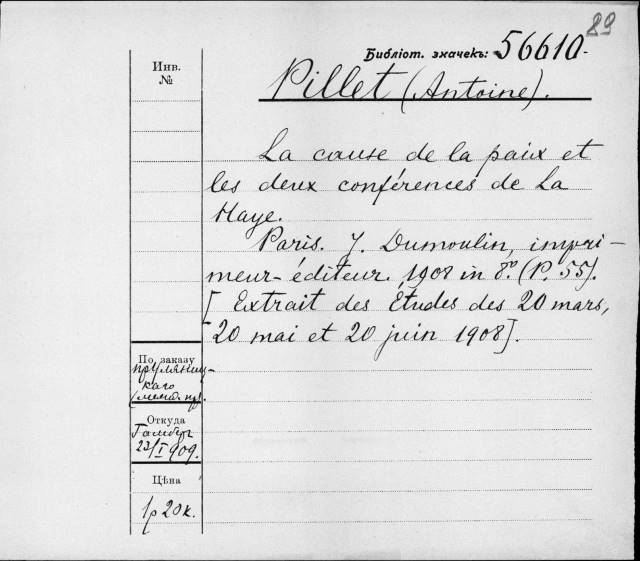 89
Библіот. значекъ: 56610-
Pillet (Antoine).
Инв.
№
La cause de la paix et
les deux conférences de La
Haye.
Paris. J. Dumoulin, impri-
meur-éditeur. 1908 in 8º. (P. 55).
[Extrait des Études des 20 mars,
20 mai et 20 juin 1908].
По заказу
каго
Откуда
23/I 909.
Цѣна
1р 20к.